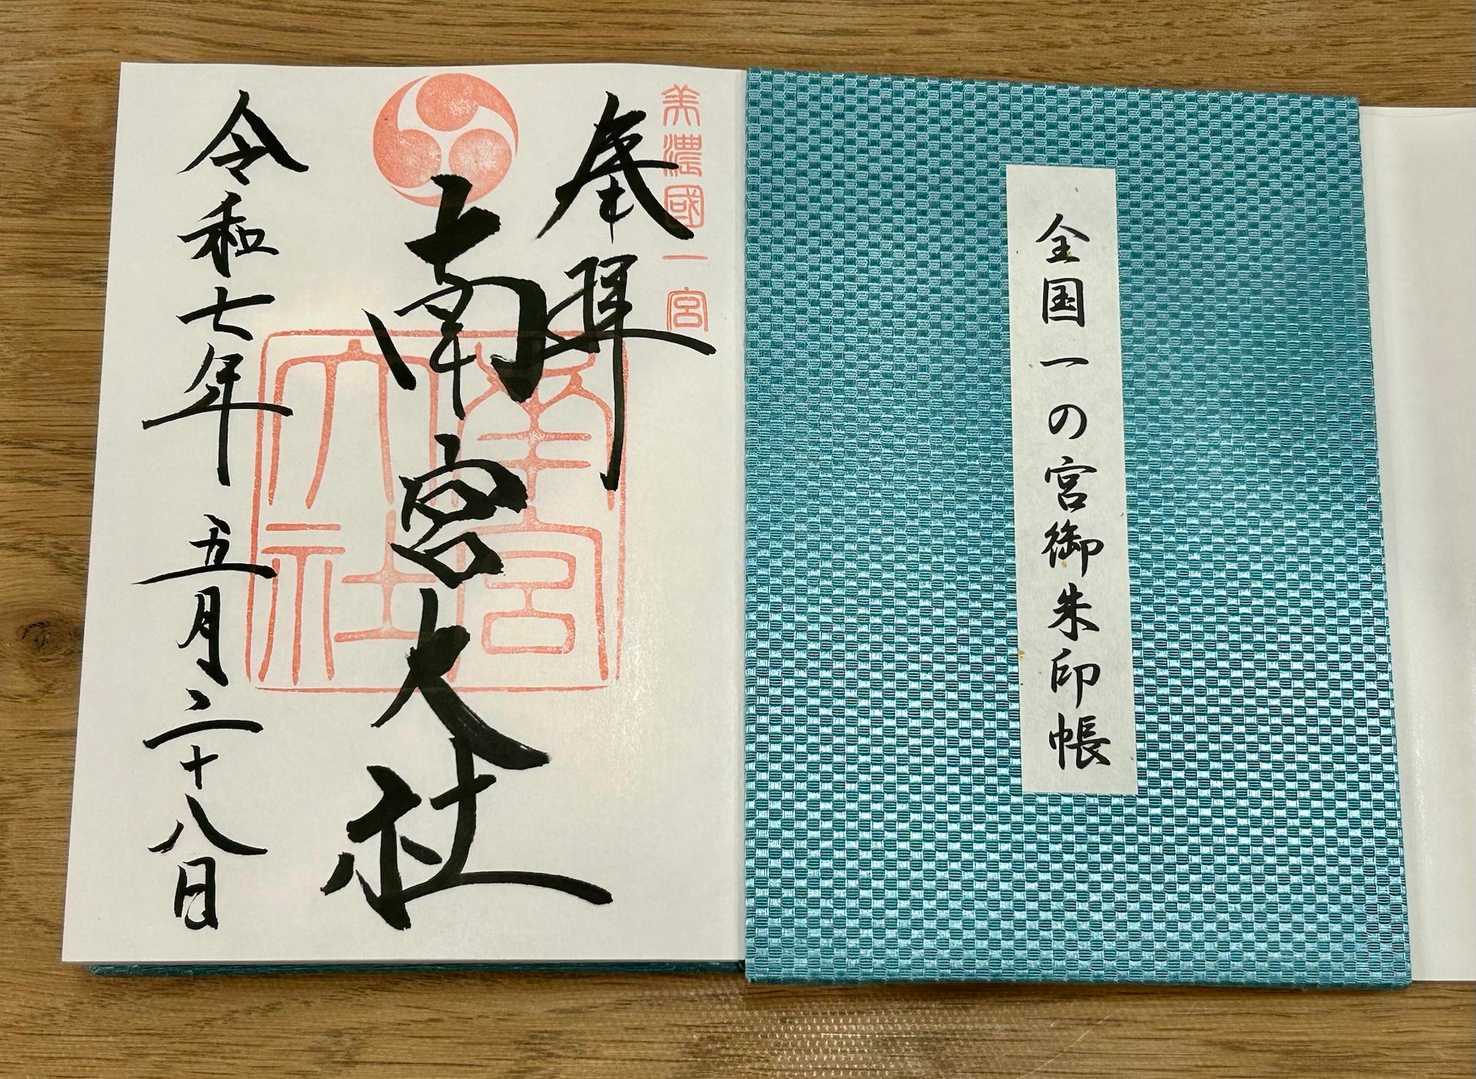 全国一の宮御朱印帳
美濃國一宮
奉拝
南宮大社
南宮
大社
令和七年 五月二十八日